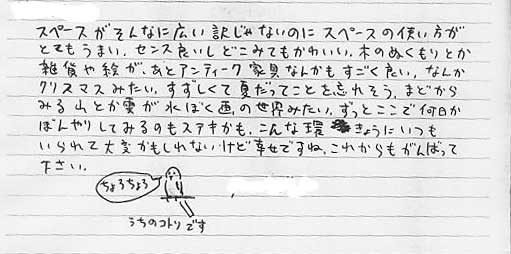 スペースがそんなに広い訳じゃないのにスペースの使い方が
とてもうまい。センス良いしどこみてもかわいい。木のぬくもりとか
雑貨や絵が、あとアンティーク家具なんかもすごく良い。なんか
クリスマスみたい。すずしくて夏だってことを忘れそう。まどから
みる山とか雲が水ぼく画の世界みたい。ずっとここで何日か
ぼんやりしてみるのもステキかも。こんな環きょうにいつも
いられて大変かもしれないけど幸せですね。これからもがんばって
下さい。
ちょろちょろ
うちのコトリです